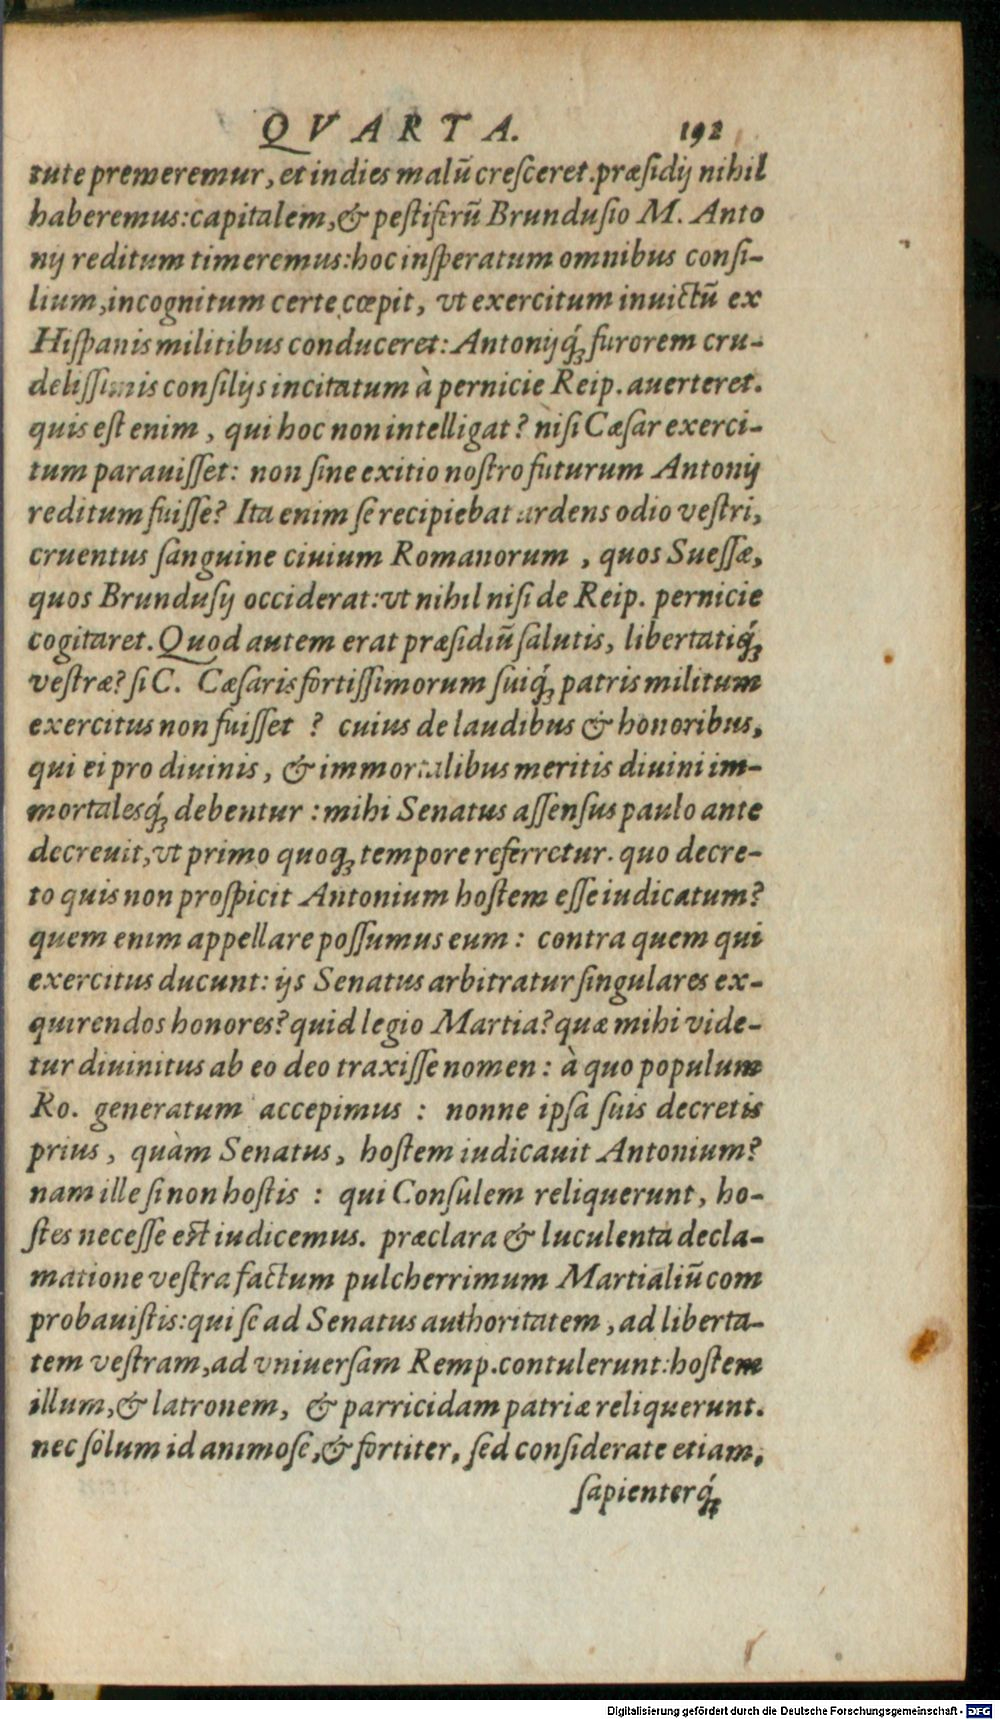 QVARTA. 192
tute premeremur, et indies malū cresceret. præsidij nihil
haberemus: capitalem, & pestiferū Brundusio M. Anto
nij reditum timeremus: hoc insperatum omnibus consi-
lium, incognitum certe cœpit, vt exercitum inuictū ex
Hispanis militibus conduceret: Antonijq́; furorem cru-
delissimis consilijs incitatum à pernicie Reip. auerteret.
quis est enim, qui hoc non intelligat? nisi Cæsar exerci-
tum parauisset: non sine exitio nostro futurum Antonij
reditum fuisse? Ita enim se recipiebat ardens odio vestri,
cruentus sanguine ciuium Romanorum, quos Suessæ,
quos Brundusij occiderat: vt nihil nisi de Reip. pernicie
cogitaret. Quod autem erat præsidiū salutis, libertatiq́;
vestræ? si C. Cæsaris fortissimorum suiq́; patris militum
exercitus non fuisset? cuius de laudibus & honoribus,
qui ei pro diuinis, & immortalibus meritis diuini im-
mortalesq́; debentur: mihi Senatus assensus paulo ante
decreuit, vt primo quoq; tempore referretur. quo decre-
to quis non prospicit Antonium hostem esse iudicatum?
quem enim appellare possumus eum: contra quem qui
exercitus ducunt: ijs Senatus arbitratur singulares ex-
quirendos honores? quid legio Martia? quæ mihi vide-
tur diuinitus ab eo deo traxisse nomen: à quo populum
Ro. generatum accepimus: nonne ipsa suis decretis
prius, quàm Senatus, hostem iudicauit Antonium?
nam ille si non hostis: qui Consulem reliquerunt, ho-
stes necesse est iudicemus. præclara & luculenta decla-
matione vestra factum pulcherrimum Martialiū com
probauistis: qui se ad Senatus authoritatem, ad liberta-
tem vestram, ad vniuersam Remp. contulerunt: hostem
illum, & latronem, & parricidam patriæ reliquerunt.
nec sòlum id animose, & fortiter, sed considerate etiam,
sapienterq́;
Digitalisierung gefördert durch die Deutsche Forschungsgemeinschaft - DFG